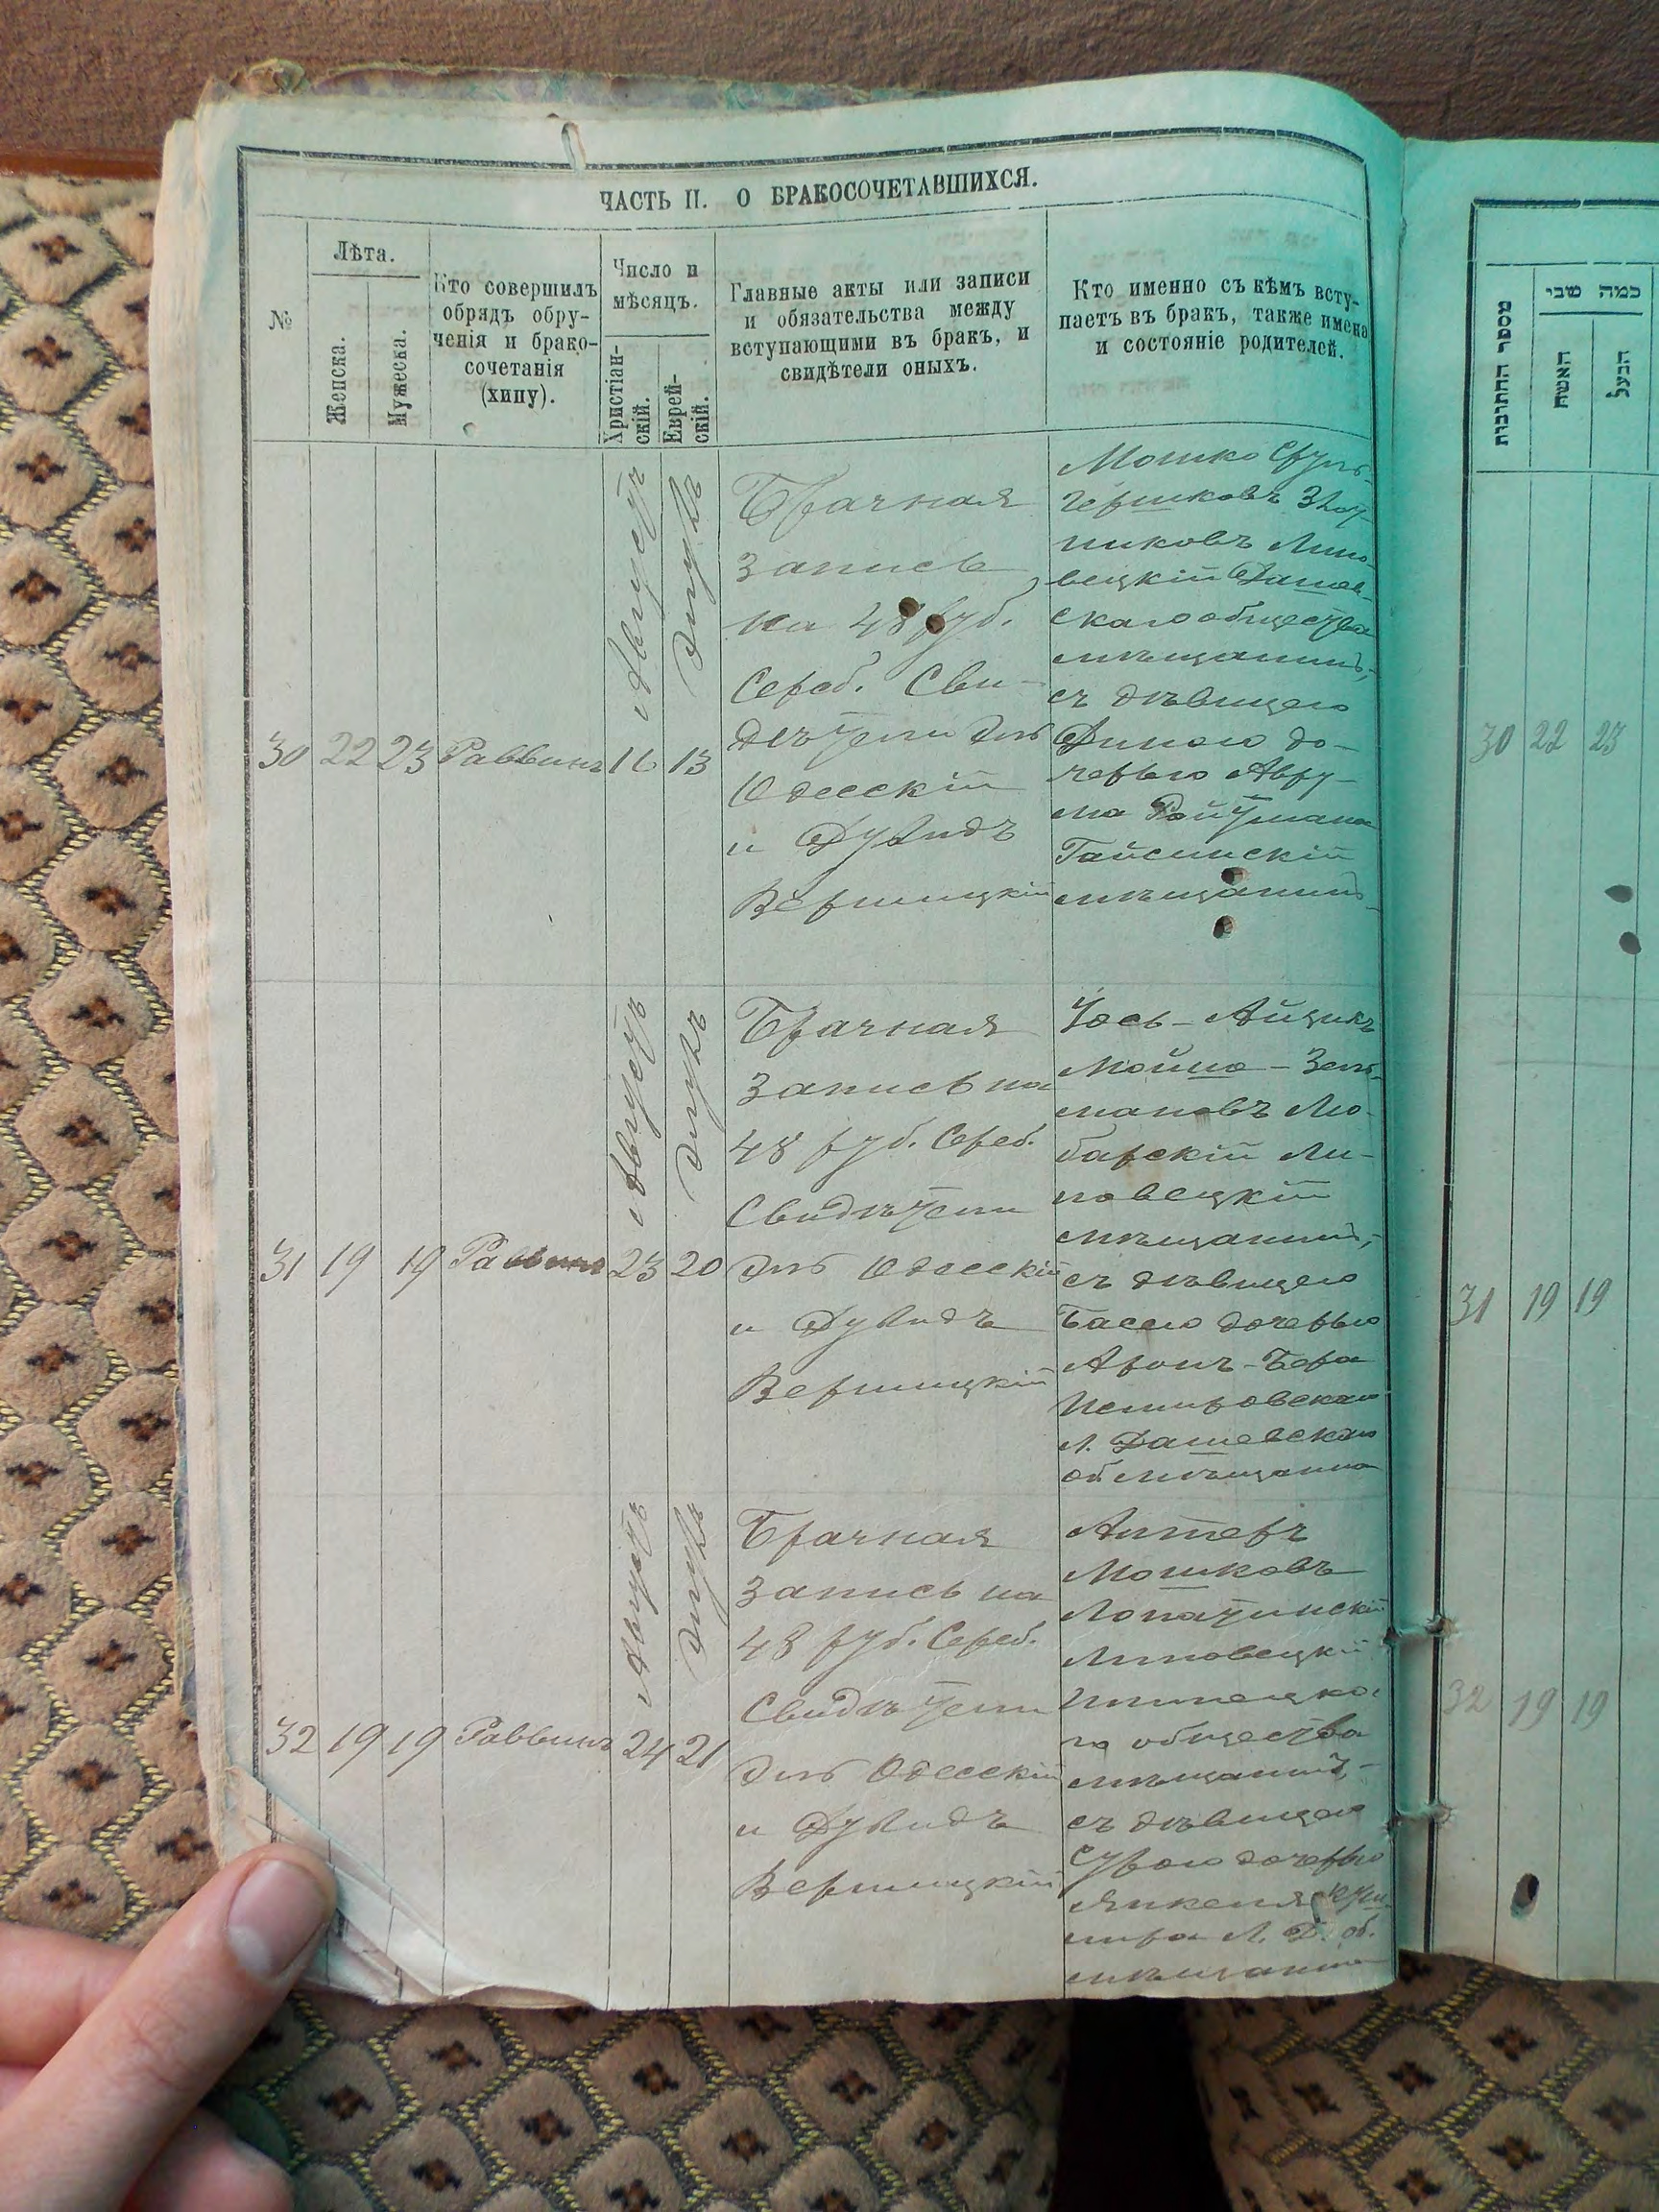 ЧАСТЬ II. О БРАКОСОЧЕТАВШИХСЯ.
№
Лѣта.
Женска.
Мужеска.
Кто совершилъ
обрядъ обру-
ченія и брако-
сочетанія
(хипу).
Число и
мѣсяцъ.
Христіан-
скій.
Еврей-
скій.
Главные акты или записи
и обязательства между
вступающими въ бракъ, и
свидѣтели оныхъ.
Кто именно съ кѣмъ всту-
паетъ въ бракъ, также имена
и состояніе родителей.
30
22
23
Раввинъ
Августъ
16
Элулъ
13
Брачная
запись
на 48 руб.
Сереб. Сви-
дѣтели
Одесскій
и Дувидъ
Вершицкій
Мошко Сруль
Гершковъ
Липо-
вецкій Дашев-
скаго общества
мѣщанинъ,
съ дѣвицею
до-
черью Авру-
ма Ройтмана
Гайсинскій
мѣщанинъ
31
19
19
Раввинъ
Августъ
23
Элулъ
20
Брачная
запись на
48 руб. Сереб.
Свидѣтели
Одесскій
и Дувидъ
Вершицкій
Іось-Айцикъ
Мойше-Зель-
мановъ Лю-
барскій Ли-
повецкій
мѣщанинъ,
съ дѣвицею
Басею дочерью
Аронъ-Бера
Немировскаго
Л. Дашевскаго
об мѣщанина
32
19
19
Раввинъ
Августъ
24
Элулъ
21
Брачная
запись на
48 руб. Сереб.
Свидѣтели
Одесскій
и Дувидъ
Вершицкій
Алтеръ
Мошковъ
Лопатинскій
Липовецкій
Илинецка-
го общества
мѣщанинъ,-
съ дѣвицею
Сурою дочерью
Янкеля
Л. Д. об.
мѣщанина
מספר החתונות
כמה שני
האשה
הבעל
30 22 23
31 19 19
32 19 19